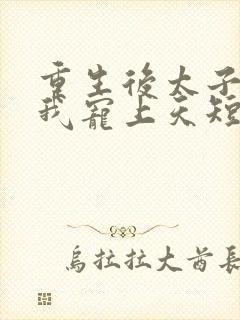 重生後太子
我寵上天短
烏拉拉大酋長